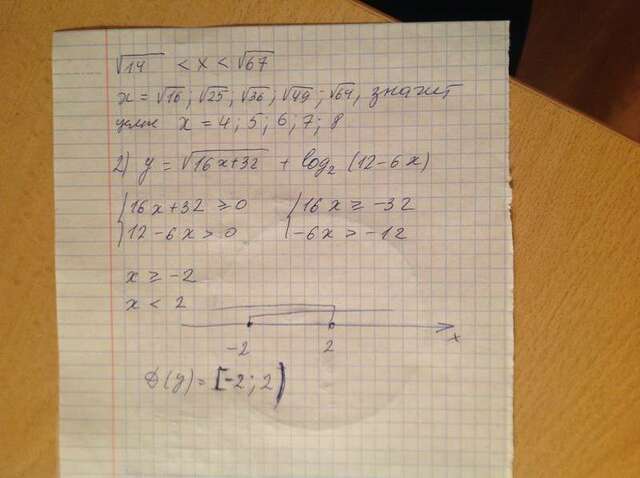 √14 < x < √67
x = √16; √25; √36; √49; √64, значит
целые x = 4; 5; 6; 7; 8
2) y = √16x+32 + log₂(12-6x)
{16x+32 ≥ 0 {16x ≥ -32
{12-6x > 0 {-6x > -12
x ≥ -2
x < 2
-2 2 x
D(y) = [-2; 2)